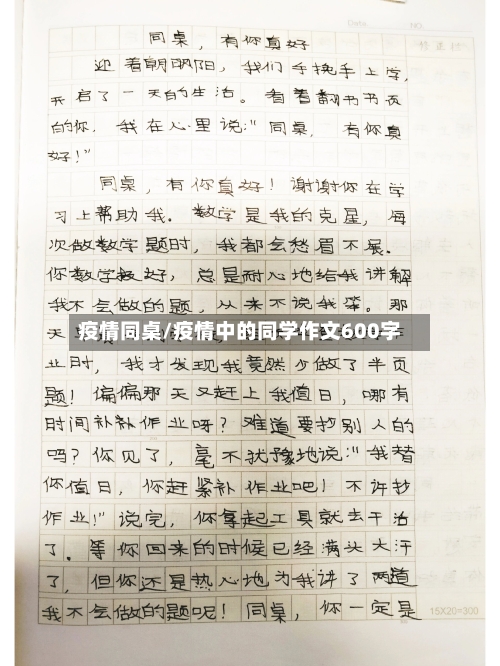 同桌，有你真好
迎着朝阳，我们手挽手上学，
开启了一天的生活。看着翻书书页
的你，我在心里说："同桌，有你真
好！"
同桌，有你真好！谢谢你在学
习上帮助我。数学是我的克星，每
次做数学题时，我都会愁眉不展．
你数学极好，总是耐心地给我讲解
我不会做的题，从来不说我笨。那
天
疫情同桌/疫情中的同学作文600字
业时，我才发现我竟然少做了半页
题！偏偏那天又赶上我值日，哪有
时间补补作业呀？难道要抄别人的
吗？你见了，毫不犹豫地说："我替
你值日，你赶紧补作业吧！不许抄
作业！"说完，你拿起工具就去干活
了。等你回来的时候已经满头大汗
了，但你还是热心地为我讲了两道
我不会做的题呢！同桌，你一定是
15X20=300